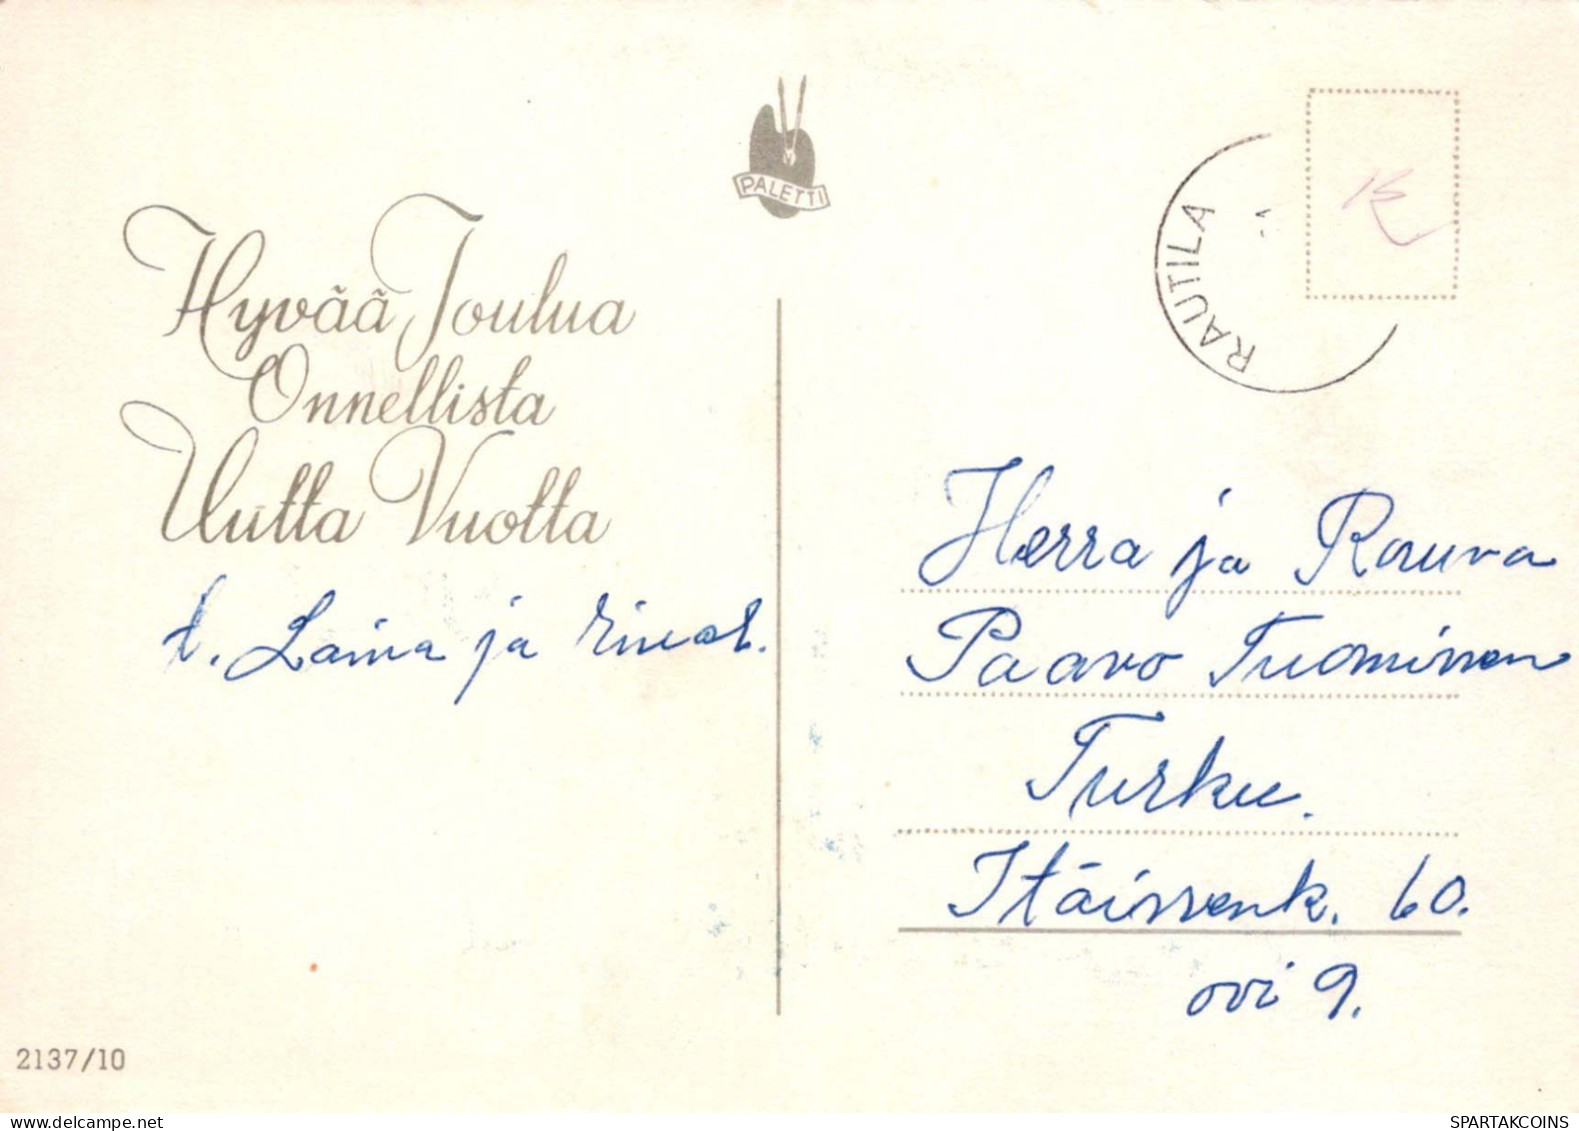 PALETTI
RAUTILA
Hyvää Joulua
Onnellista
Uutta Vuotta
t. Laina ja
Herra ja Rouva
Paavo Tuominen
Turku.
Itäissenk. 60.
ovi 9.
2137/10
delcampe.net
SPARTAKCOINS